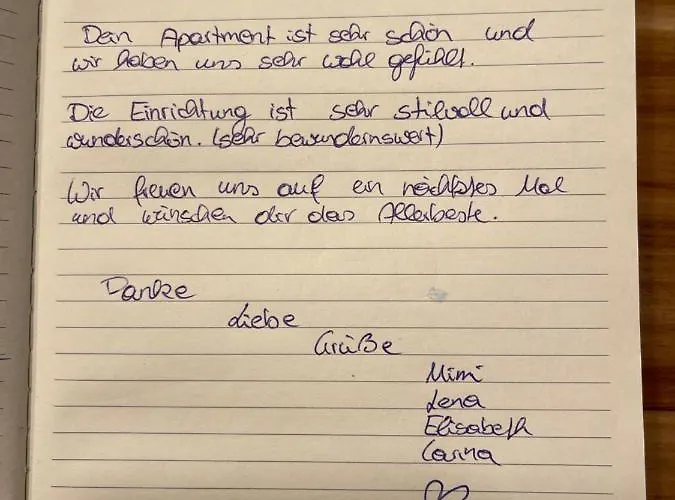 Dein Apartment ist sehr schön und
wir haben uns sehr wohl gefühlt.
Die Einrichtung ist sehr stilvoll und
wunderschön. (sehr bewundernswert)
Wir freuen uns auf ein nächstes Mal
und wünschen dir das Allerbeste.
Danke
Liebe
Grüße
Mimi
Lena
Elisabeth
Carina